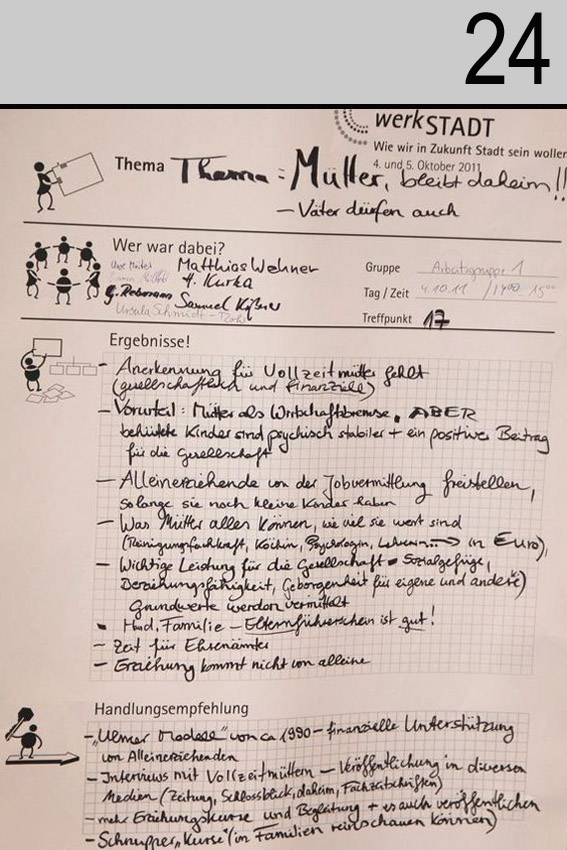 24
werkSTADT
Wie wir in Zukunft Stadt sein wollen
4. und 5. Oktober 2011
Thema Thema: Mütter, bleibt daheim!!
– Väter dürfen auch
Wer war dabei?
Matthias Wehner
H. Kurka
G. Rebmann Samuel
Ursula Schmidt -
Gruppe Arbeitsgruppe 1
Tag / Zeit 4.10.11 / 14⁰⁰ 15⁰⁰
Treffpunkt 17
Ergebnisse!
- Anerkennung für Vollzeitmütter fehlt
(gesellschaftlich und finanziell)
– Vorurteil: Mütter als Wirtschaftsbremse, ABER
behütete Kinder sind psychisch stabiler + ein positiver Beitrag
für die Gesellschaft
– Alleinerziehende von der Jobvermittlung freistellen,
solange sie noch kleine Kinder haben
– Was Mütter alles können, wie viel sie wert sind
(Reinigungsfachkraft, Köchin, Psychologin, Lehrerin...→ in Euro),
– Wichtige Leistung für die Gesellschaft = Sozialgefüge,
Beziehungsfähigkeit, Geborgenheit für eigene und andere)
Grundwerte werden vermittelt
- Hud, Familie – Elternführerschein ist gut!
– Zeit für Ehrenämter
– Erziehung kommt nicht von alleine
Handlungsempfehlung
– „Ulmer Modell" von ca 1990 – finanzielle Unterstützung
von Alleinerziehenden
– Interviews mit Vollzeitmüttern – Veröffentlichung in diversen
Medien (Zeitung, Schlossblick, daheim, Fachzeitschriften)
– mehr Erziehungskurse und Begleitung + es auch veröffentlichen
– Schnupper„kurse" (in Familien reinschauen können)